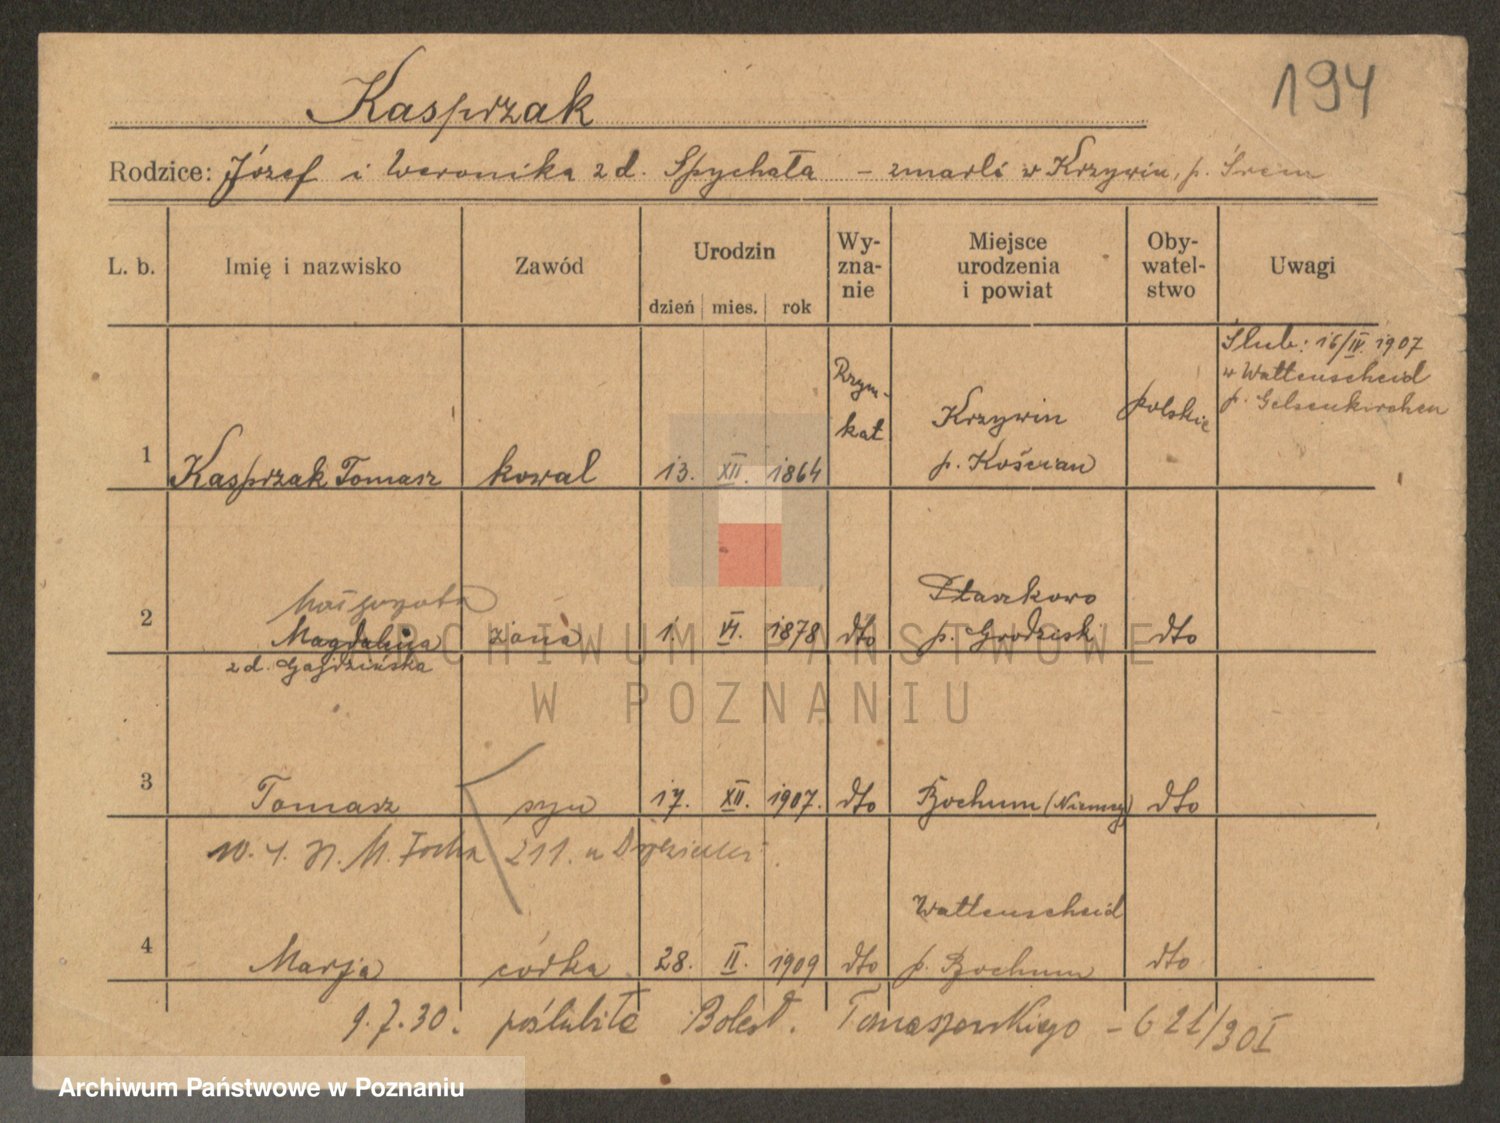 194
Kasprzak
Rodzice: Józef i Weronika z d. Spychała – zmarli w Krzywin, p. Śrem
L. b.
Imię i nazwisko
Zawód
Urodzin
dzień mies. rok
Wy-
zna-
nie
Miejsce
urodzenia
i powiat
Oby-
watel-
stwo
Uwagi
1
Kasprzak Tomasz
kowal
13. XII. 1864
Rzym-
kat
Krzywin
p. Kościan
polskie
Ślub: 16/IV. 1907
w Wattenscheid
p. Gelsenkirchen
2
Małgorzata
Magdalena
z d. Gajdzińska
żona
1. VI. 1878
dto
Ptaszkowo
p. Grodzisk
dto
3
Tomasz
syn
17. XII. 1907.
dto
Bochum (Niemcy)
dto
M. Focha 211.
4
Marja
córka
28. II. 1909
dto
Wattenscheid
p. Bochum
dto
9.7.30. poślubiła Bolesł. Tomaszewskiego – 621/30 I
ARCHIWUM PAŃSTWOWE
W POZNANIU
Archiwum Państwowe w Poznaniu